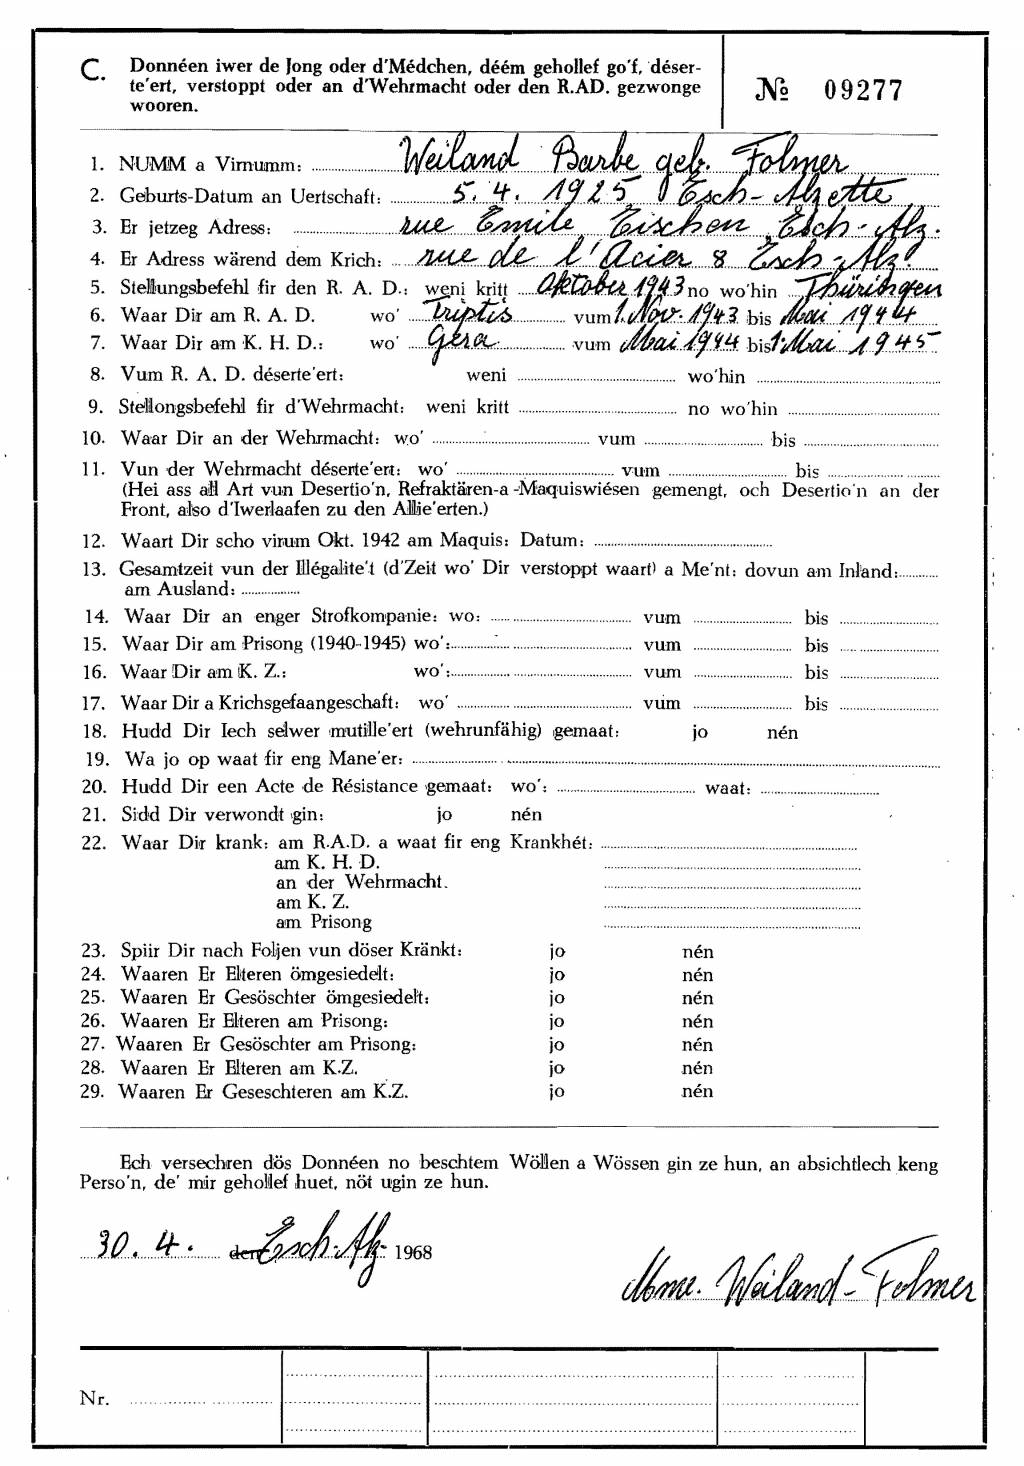 C. Donnéen iwer de Jong oder d'Médchen, déém gehollef go'f, déser-
te'ert, verstoppt oder an d'Wehrmacht oder den R.AD. gezwonge
wooren.
№ 09277
1. NUMM a Virnumm: Weiland Barbe geb. Folmer
2. Geburts-Datum an Uertschaft: 5. 4. 1925 Esch-Alzette
3. Er jetzeg Adress: rue Emile Eischen, Esch-Alz.
4. Er Adress wärend dem Krich: rue de l'Acier 8 Esch-Alz.
5. Stellungsbefehl fir den R. A. D.: weni kritt Oktober 1943 no wo'hin Thüringen
6. Waar Dir am R. A. D. wo' Triptis vum 1. Nov. 1943 bis Mai 1944
7. Waar Dir am K. H. D.: wo' Gera vum Mai 1944 bis 1. Mai 1945
8. Vum R. A. D. déserte'ert: weni wo'hin
9. Stellongsbefehl fir d'Wehrmacht: weni kritt no wo'hin
10. Waar Dir an der Wehrmacht: wo' vum bis
11. Vun der Wehrmacht déserte'ert: wo' vum bis
(Hei ass all Art vun Desertio'n, Refraktären-a -Maquiswiésen gemengt, och Desertio'n an der
Front, also d'Iwerlaafen zu den Allie'erten.)
12. Waart Dir scho virum Okt. 1942 am Maquis: Datum:
13. Gesamtzeit vun der Illégalite't (d'Zeit wo' Dir verstoppt waart) a Me'nt: dovun am Inland:
am Ausland:
14. Waar Dir an enger Strofkompanie: wo: vum bis
15. Waar Dir am Prisong (1940-1945) wo': vum bis
16. Waar Dir am K. Z.: wo': vum bis
17. Waar Dir a Krichsgefaangeschaft: wo' vum bis
18. Hudd Dir Iech selwer mutille'ert (wehrunfähig) gemaat: jo nén
19. Wa jo op waat fir eng Mane'er:
20. Hudd Dir een Acte de Résistance gemaat: wo': waat:
21. Sidd Dir verwondt gin: jo nén
22. Waar Dir krank: am R.A.D. a waat fir eng Krankhét:
am K. H. D.
an der Wehrmacht.
am K. Z.
am Prisong
23. Spiir Dir nach Foljen vun döser Kränkt: jo nén
24. Waaren Er Elteren ömgesiedelt: jo nén
25. Waaren Er Gesöschter ömgesiedelt: jo nén
26. Waaren Er Elteren am Prisong: jo nén
27. Waaren Er Gesöschter am Prisong: jo nén
28. Waaren Er Elteren am K.Z. jo nén
29. Waaren Er Geseschteren am K.Z. jo nén
Ech versechren dös Donnéen no beschtem Wöllen a Wössen gin ze hun, an absichtlech keng
Perso'n, de' mir gehollef huet, nöt ugin ze hun.
30. 4. den Esch-Alz. 1968
Mme. Weiland-Folmer
Nr.